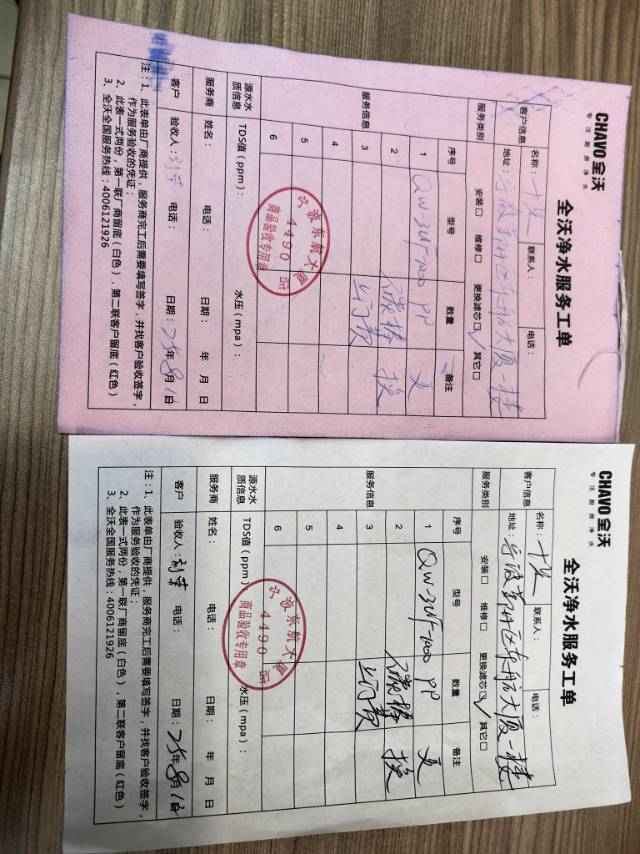 CHAVO全沃
专注厨房净水
全沃净水服务工单
客户信息 名称： 联系人： 电话：
地址：宁波 区东航大厦一楼
服务类别 安装□ 维修□ 更换滤芯☑ 其它□
服务信息 序号 型号 数量 备注
1 QW-3UF-1000 PP 更
2 碳棒 换
3 上门费
4
5
6
源水水质信息 TDS值(ppm)： 水压(mpa)：
宁波东航大 店
4490
商品验收专用章
服务商 姓名： 电话： 日期： 年 月 日
客户 验收人： 电话： 日期：25年8月 日
注：1、此表单由厂商提供，服务商完工后需要填写签字，并找客户验收签字，
作为服务验收的凭证；
2、此表一式两份，第一联厂商留底(白色)，第二联客户留底(红色)
3、全沃全国服务热线：4006121926
CHAVO全沃
专注厨房净水
全沃净水服务工单
客户信息 名称： 联系人： 电话：
地址：宁波 区东航大厦一楼
服务类别 安装□ 维修□ 更换滤芯☑ 其它□
服务信息 序号 型号 数量 备注
1 QW-3UF-1000 PP 更
2 碳棒 换
3 上门费
4
5
6
源水水质信息 TDS值(ppm) 水压(mpa)：
宁波东航大 店
4490
商品验收专用章
服务商 姓名： 电话： 日期： 年 月 日
客户 验收人： 电话： 日期：25年8月 日
注：1、此表单由厂商提供，服务商完工后需要填写签字，并找客户验收签字，
作为服务验收的凭证；
2、此表一式两份，第一联厂商留底(白色)，第二联客户留底(红色)
3、全沃全国服务热线：4006121926